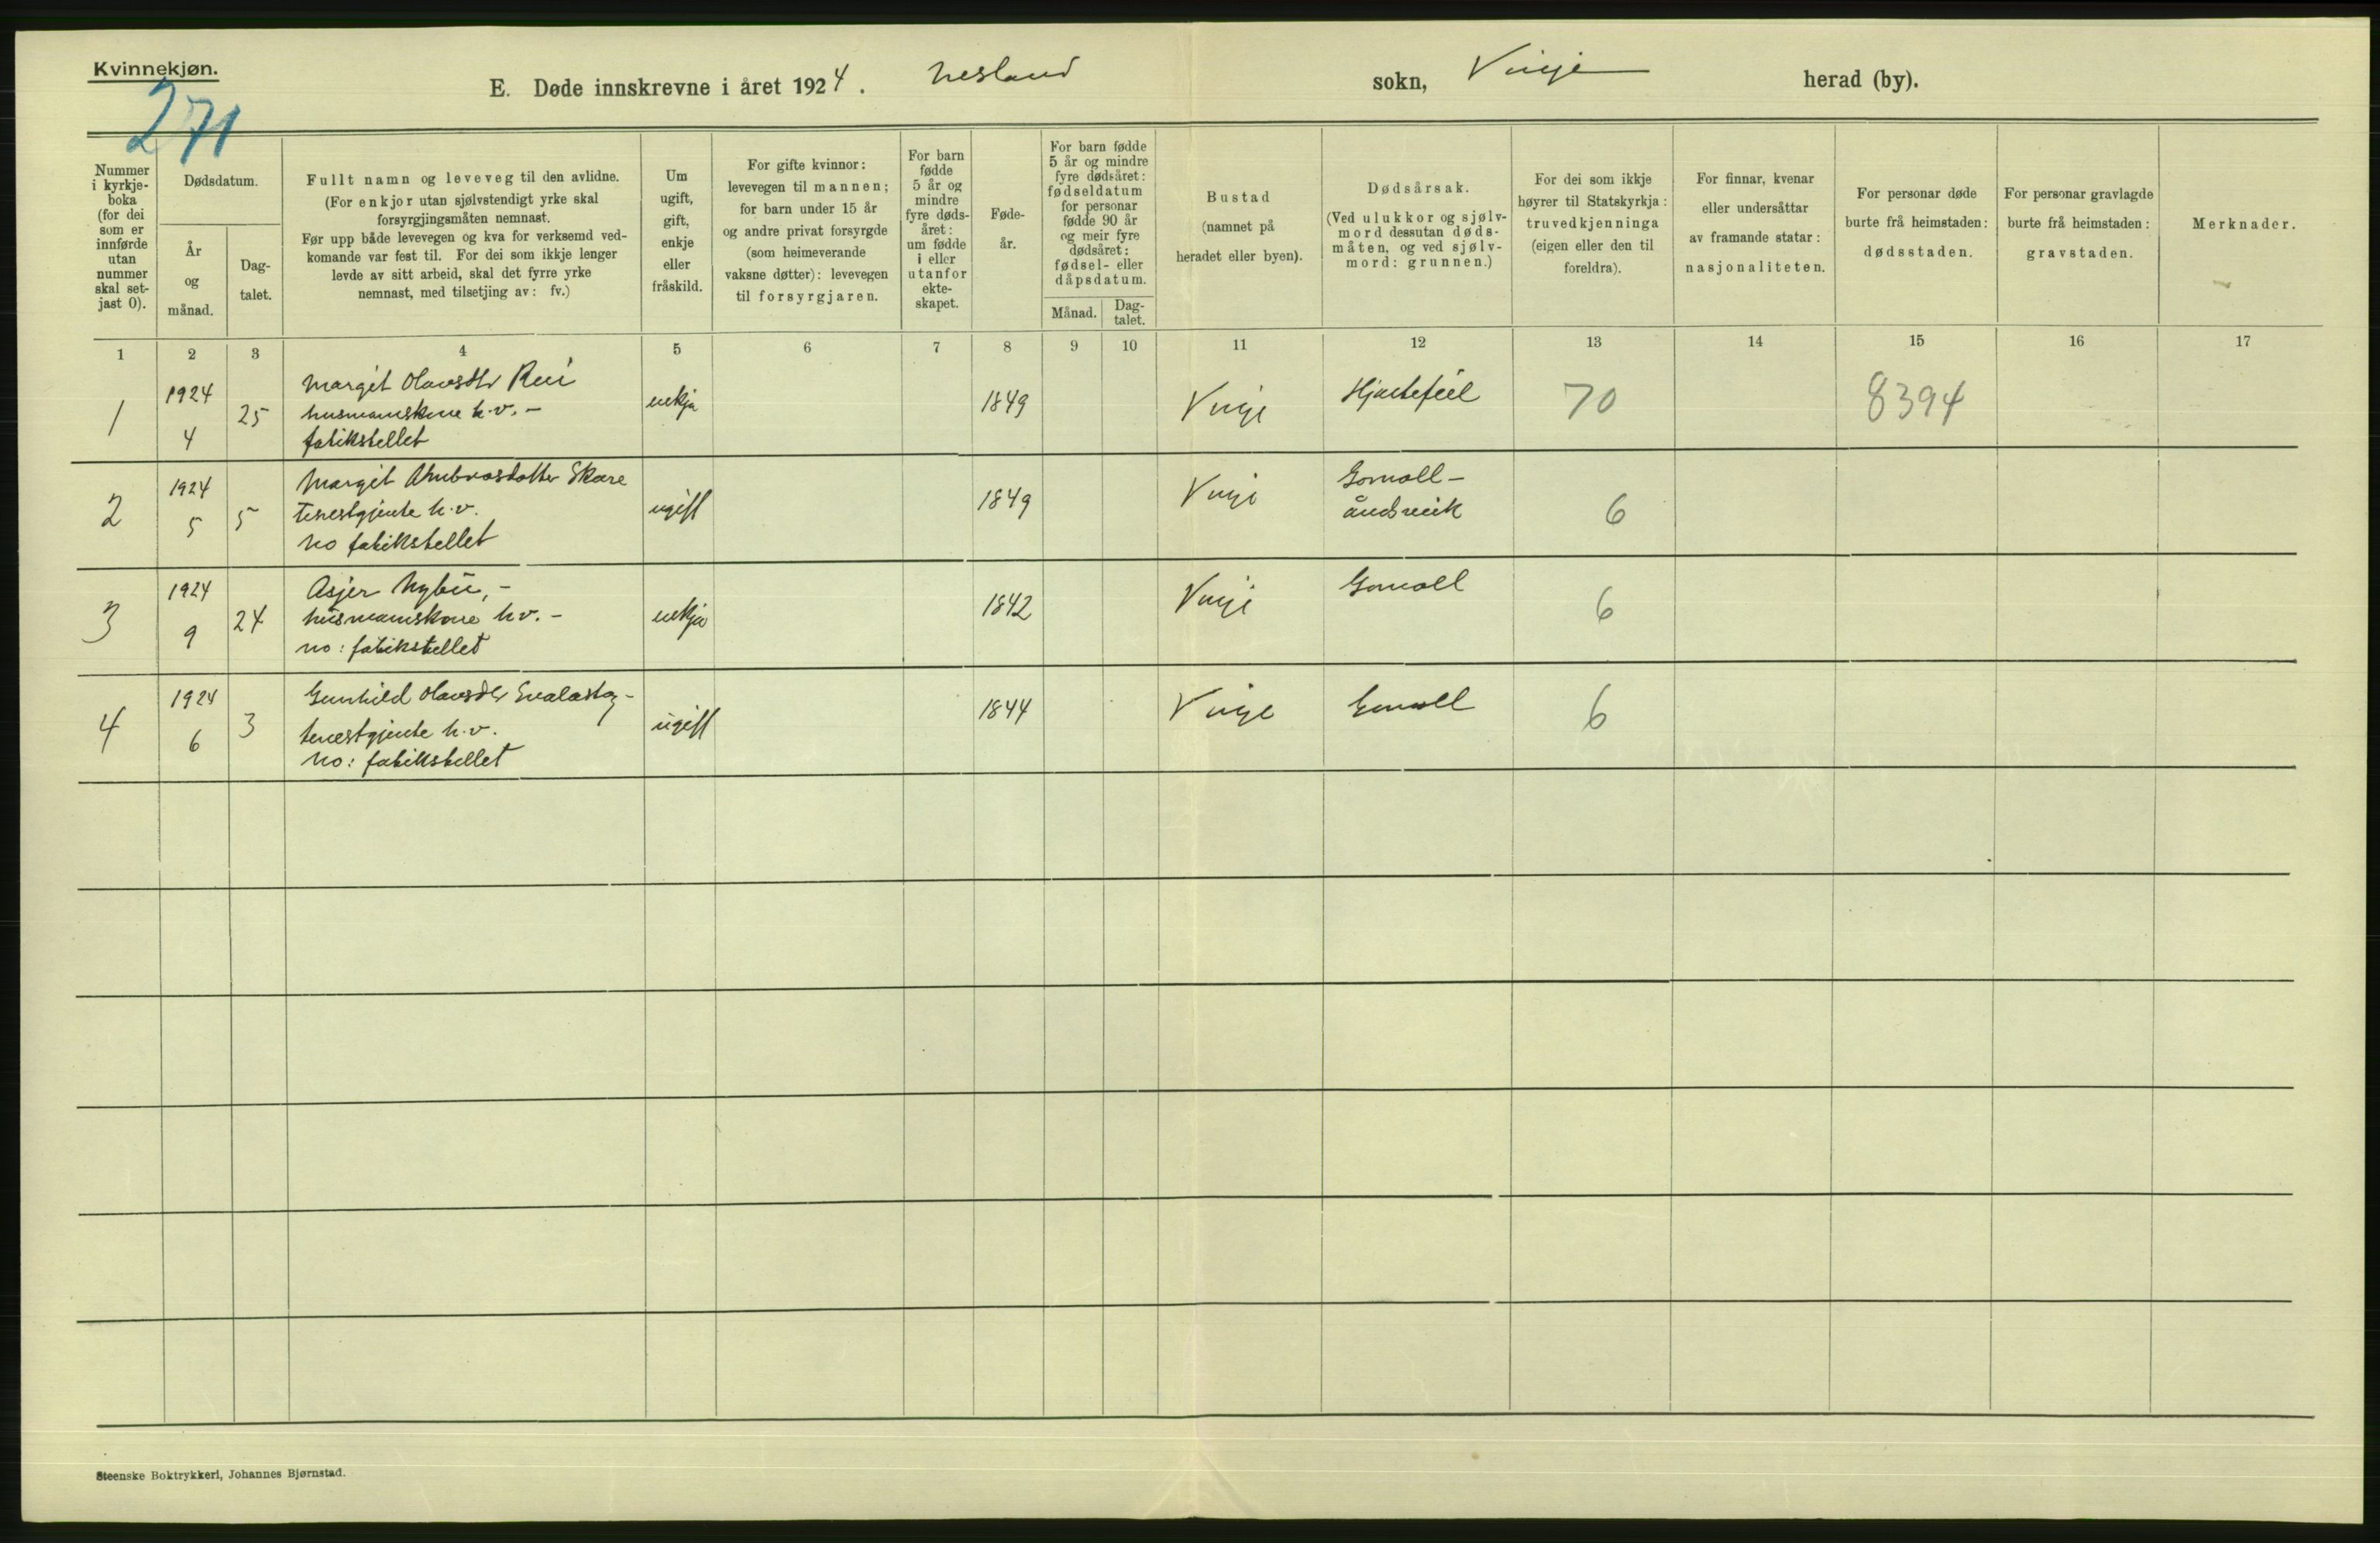 Kvinnekjøn.
271
E. Døde innskrevne i året 1924. Nesland sokn, Vinje herad (by).
Nummer
i kyrkje-
boka
(for dei
som er
innførde
utan
nummer
skal set-
jast 0).
Dødsdatum.
År
og
månad.
Dag-
talet.
Fullt namn og leveveg til den avlidne.
(For enkjor utan sjølvstendigt yrke skal
forsyrgjingsmåten nemnast.
Før upp både levevegen og kva for verksemd ved-
komande var fest til. For dei som ikkje lenger
levde av sitt arbeid, skal det fyrre yrke
nemnast, med tilsetjing av: fv.)
Um
ugift,
gift,
enkje
eller
fråskild.
For gifte kvinnor:
levevegen til mannen;
for barn under 15 år
og andre privat forsyrgde
(som heimeverande
vaksne døtter): levevegen
til forsyrgjaren.
For barn
fødde
5 år og
mindre
fyre døds-
året:
um fødde
i eller
utanfor
ekte-
skapet.
Føde-
år.
For barn fødde
5 år og mindre
fyre dødsåret:
fødseldatum
for personar
fødde 90 år
og meir fyre
dødsåret:
fødsel- eller
dåpsdatum.
Månad.
Dag-
talet.
Bustad
(namnet på
heradet eller byen).
Dødsårsak.
(Ved ulukkor og sjølv-
mord dessutan døds-
måten, og ved sjølv-
mord: grunnen.)
For dei som ikkje
høyrer til Statskyrkja:
truvedkjenninga
(eigen eller den til
foreldra).
For finnar, kvenar
eller undersåttar
av framande statar:
nasjonaliteten.
For personar døde
burte frå heimstaden:
dødsstaden.
For personar gravlagde
burte frå heimstaden:
gravstaden.
Merknader.
1 2 3 4 5 6 7 8 9 10 11 12 13 14 15 16 17
1
1924
4
25
Margit Olavsdtr Rui
husmannskone h.v. -
fatikstellet
enkja
1849
Vinje
Hjartefeil
70
8394
2
1924
5
5
Margit Ambrosdotter Skare
Tenestgjente h.v.
no fatikstellet
ugift
1849
Vinje
Gomall-
6
3
1924
9
24
Asjer Nybu, -
husmannskone h.v. -
no: fatikstellet
enkja
1842
Vinje
Gomall
6
4
1924
6
3
Gunhild Olavsdtr
tenestgjente h.v.
no: fatikstellet
ugift
1844
Vinje
Gomall
6
Steenske Boktrykkeri, Johannes Bjørnstad.